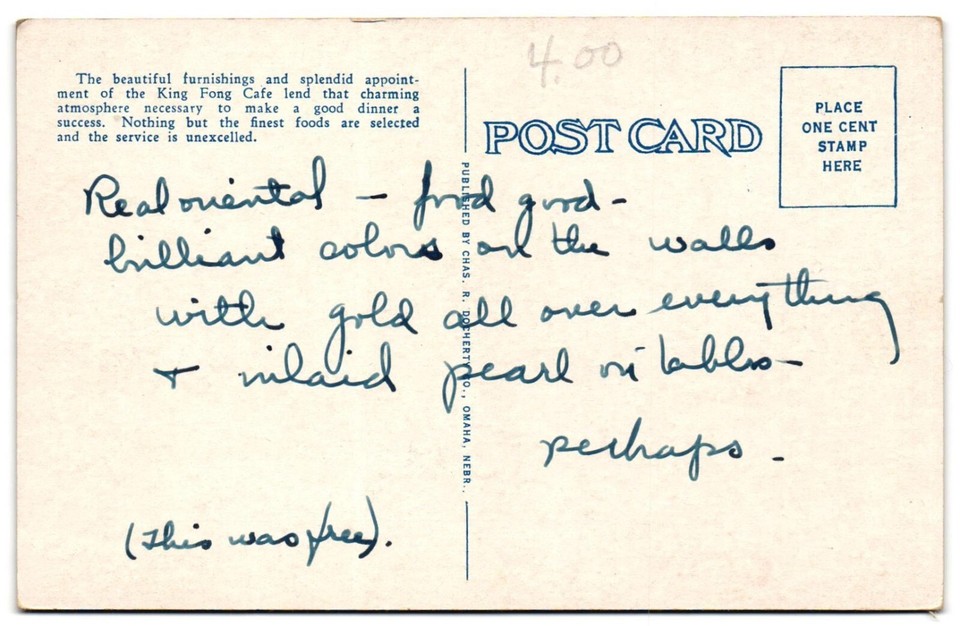 The beautiful furnishings and splendid appoint-
ment of the King Fong Cafe lend that charming
atmosphere necessary to make a good dinner a
success. Nothing but the finest foods are selected
and the service is unexcelled.
4.00
POST CARD
PLACE
ONE CENT
STAMP
HERE
PUBLISHED BY CHAS. R. DOCHERTY CO., OMAHA, NEBR.
Real oriental – food good –
brilliant colors on the walls
with gold all over everything
+ inlaid pearl in tables –
perhaps –
(This was free).